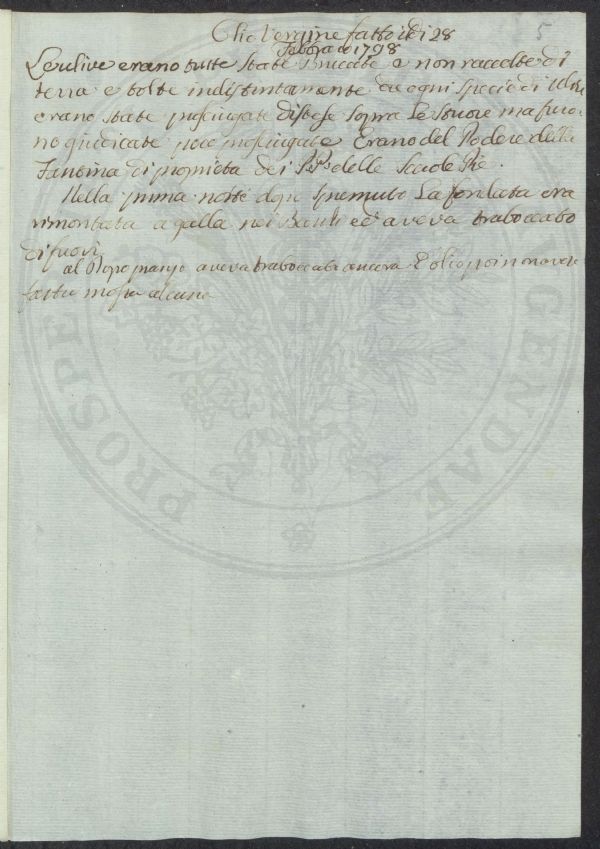 5
Olio Vergine fatto il dì 28
Febbraio 1798
Le ulive erano tutte state Bruccate e non raccolte di
terra e tolte indistintamente da ogni specie di Ulivi
erano state prosciugate distese sopra Le Stuore ma furo-
no giudicate poco prosciugate Erano del Podere della
di proprietà dei PP. delle Scuole Pie.
Nella prima notte dopo spremuto La fondata era
rimontata a galla nei Barili ed aveva traboccato
di fuori
al Dopo pranzo aveva traboccato ancora L'olio poi non aveva
fatto mossa alcuna
PROSPE GENDAE